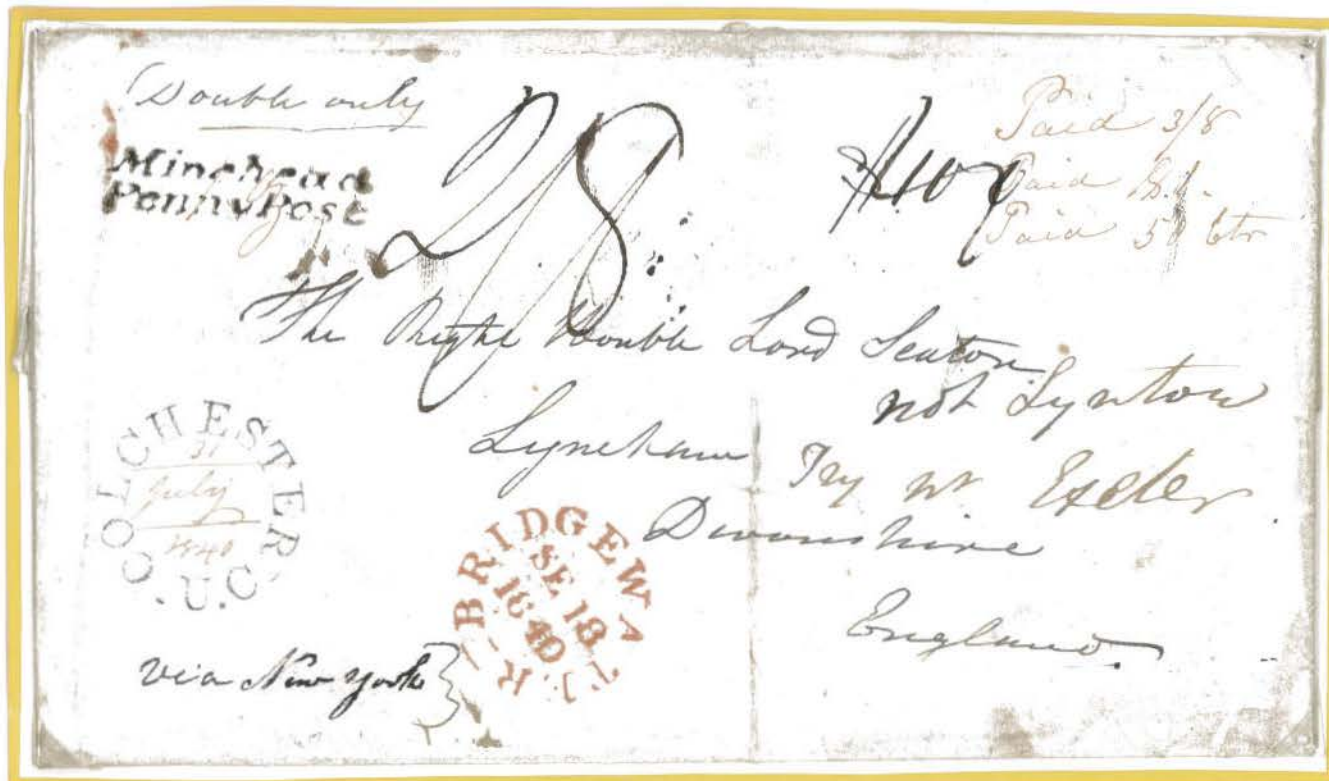 Double only
Minehead
Penny Post
2/8
Paid 3/8
Paid
Paid 50 cts
The Right Honble Lord Seaton
not Lynton
Lyneham
Try nr Exeter
Devonshire
England.
COLCHESTER
31
July
1840
U.C.
BRIDGEWATER
SE 18
1840
via New York